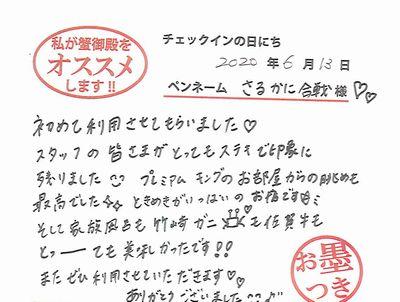 私が蟹御殿を
オススメ
します!!
チェックインの日にち
2020 年 6 月 13 日
ペンネーム さるかに合戦 様♡♡
初めて利用させてもらいました♡
スタッフの皆さまがとってもステキで印象に
残りました プレミアムキングのお部屋からの眺めも
最高でした ときめきがいっぱいのお宿です
そして家族風呂も竹崎ガニも佐賀牛も
とっーても美味しかったです!!
またぜひ利用させていただきます♡
ありがとうございました
お墨
つき